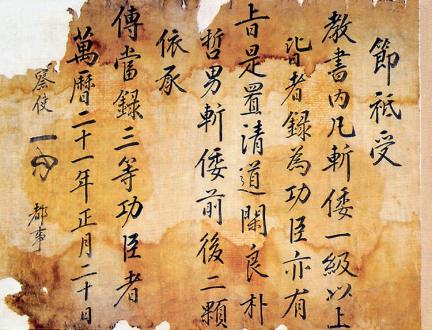 節祗受
教書內凡斬倭一級以上
皆者錄為功臣亦有
旨是置清道閑良朴
哲男斬倭前後二顆
依承
傳當錄三等功臣者
萬曆二十一年正月二十日
察使 都事